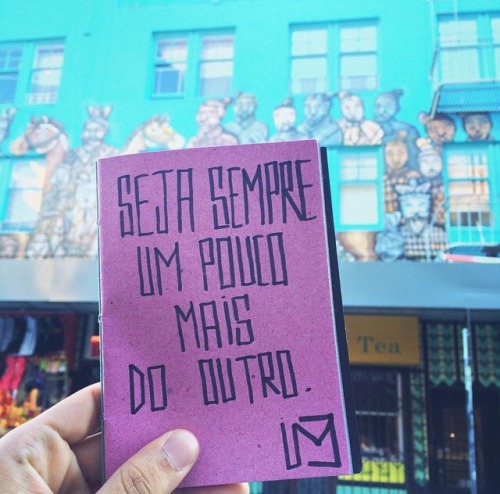 SEJA SEMPRE
UM POUCO
MAiS
DO OUTRO.
iM
Tea